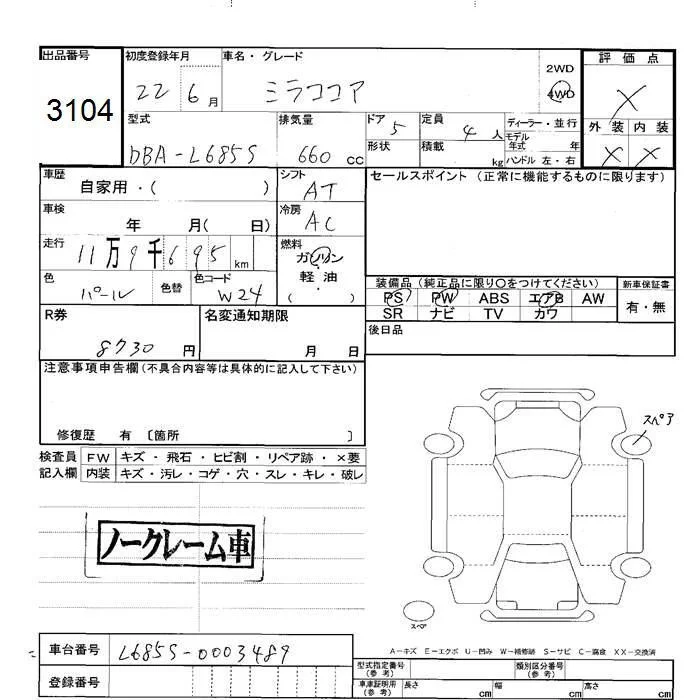 出品番号
3104
初度登録年月
22 6月
車名・グレード
ミラココア
2WD
4WD
評価点
X
外装 内装
X X
型式
DBA-L685S
排気量
660 cc
ドア
5
形状
定員
4 人
積載
kg
ディーラー・並行
モデル年式 年
ハンドル 左・右
車歴
自家用・( )
シフト
AT
セールスポイント (正常に機能するものに限ります)
車検
年 月( 日)
冷房
AC
走行
11万9千695km
燃料
ガソリン
・
軽油
( )
色
パール
色替
色コード
W24
装備品(純正品に限り○をつけてください)
PS PW ABS エアB AW
SR ナビ TV カワ
新車保証書
有・無
R券
8730 円
名変通知期限
月 日
後日品
注意事項申告欄(不具合内容等は具体的に記入して下さい)
修復歴 有 〔箇所 〕
検査員 FW キズ・飛石・ヒビ割・リペア跡・×要
記入欄 内装 キズ・汚レ・コゲ・穴・スレ・キレ・破レ
スペア
ノークレーム車
スペア
A-キズ E-エクボ U-凹み W-補修跡 S-サビ C-腐食 XX-交換済
車台番号
L685S-0003489
登録番号
型式指定番号
(参考)
類別区分番号
(参考)
車庫証明用
(参考)
長さ cm
幅 cm
高さ cm